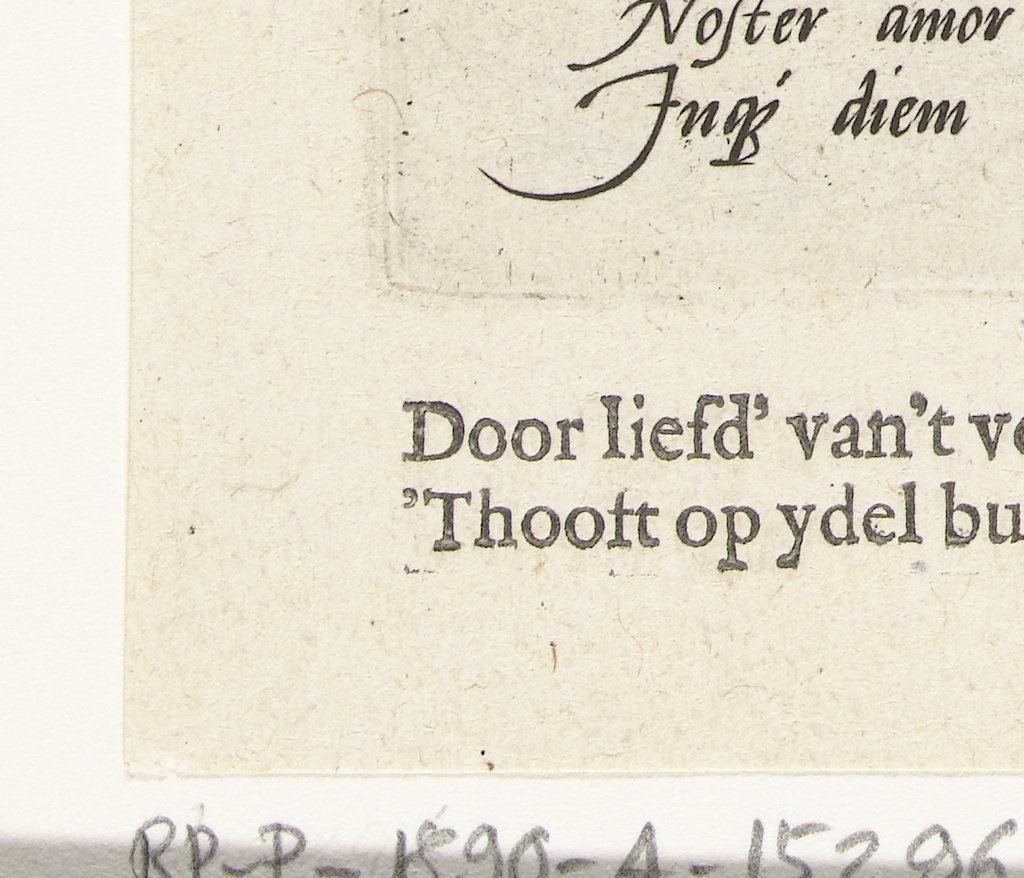 Noſter amor
Inqꝫ diem
Door liefd' van't
'Thooft op ydel
RP-P-1890-A-15296